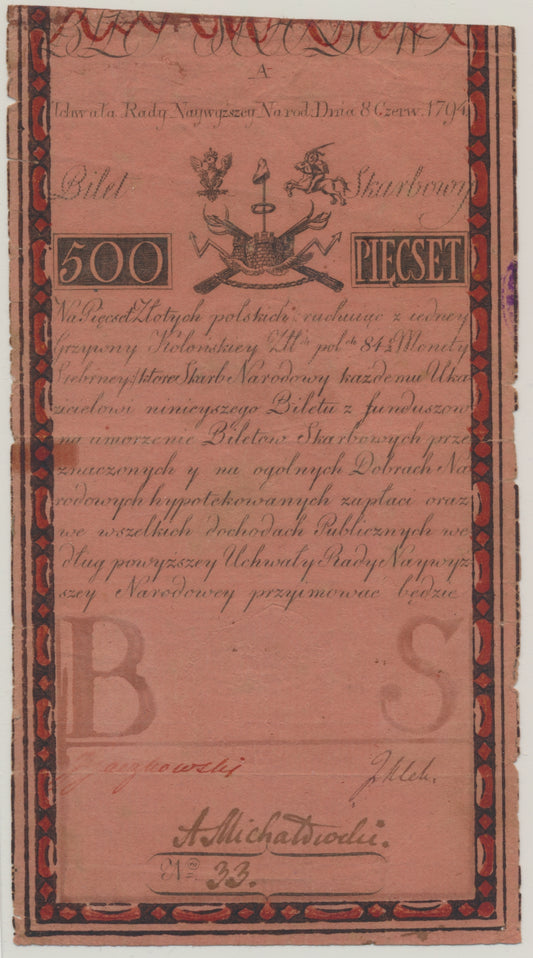 A
Uchwała Rady Naywyższey Narod. Dnia 8 Czerw. 1794
Bilet Skarbowy
500 PIĘCSET
Na Pięcset Złotych polskich rachuiąc z iedney
Grzywny Kolońskiey Złł. pol. 84½ Monety
Srebrney, które Skarb Narodowy każdemu Uka
zicielowi ninieyszego Biletu z funduszow
na umorzenie Biletow Skarbowych prze
znaczonych y na ogolnych Dobrach Na
rodowych hypotekowanych zapłaci oraz
we wszelkich dochodach Publicznych we
dług powyższey Uchwały Rady Naywyż
szey Narodowey przyimować będzie
B S
A Michałowski.
No 33.